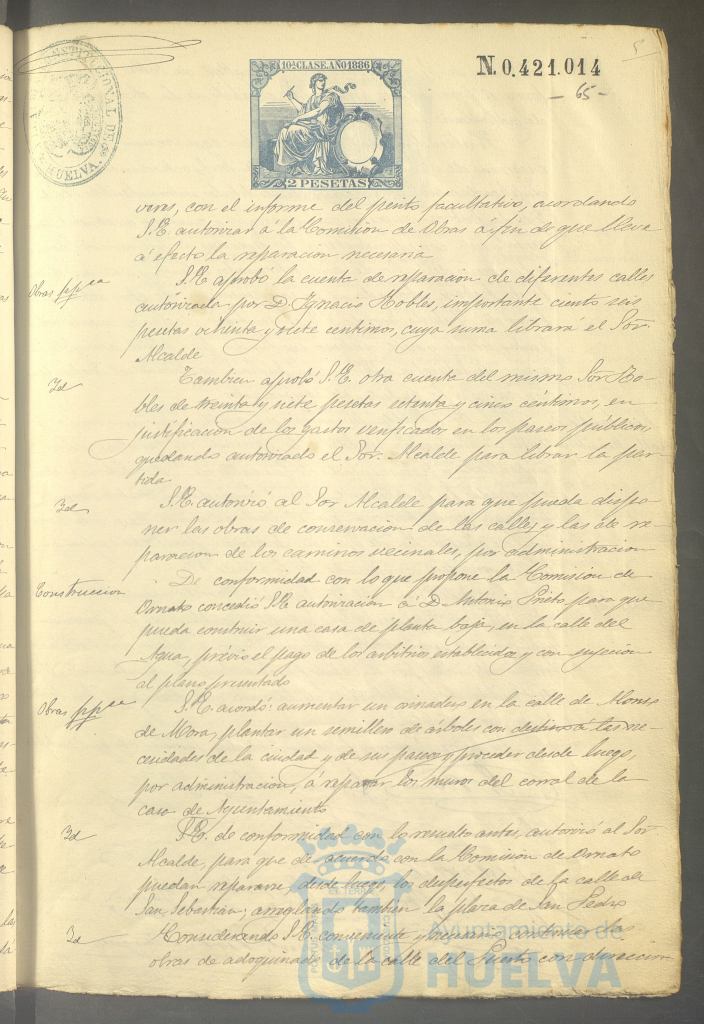 CONSTITUCIONAL DE
HUELVA.
10ª CLASE. AÑO 1886
2 PESETAS
N.0.421.014
5
- 65 -
con el informe del perito facultativo, acordando
S.E. autorizar á la Comision de Obras á fin de que lleve
á efecto la reparacion necesaria
Obras pp.as
S.E. aprobó la cuenta de reparacion de diferentes calles
autorizada por D. Ignacio Robles, importante ciento seis
pesetas ochenta y siete centimos, cuya suma librará el Sor.
Alcalde
Id
Tambien aprobó S.E. otra cuenta del mismo Sor Ro-
bles de treinta y siete pesetas setenta y cinco céntimos, en
justificacion de los gastos verificados en los paseos públicos,
quedando autorizado el Sor. Alcalde para librar la par-
tida.
Id
S.E. autorizó al Sor Alcalde para que pueda dispo-
ner las obras de conservacion de las calles y las de re-
paracion de los caminos vecinales, por administracion
Construccion
De conformidad con lo que propone la Comision de
Ornato concedió S.E. autorizacion á D. Antonio Prieto para que
pueda construir una casa de planta baja, en la calle del
Agua, prévio el pago de los arbitrios establecidos y con sujecion
al plano presentado
Obras pp.as
S.E. acordó: aumentar un orinadero en la calle de Alonso
de Mora, plantar un semillero de árboles con destino á las ne-
cesidades de la ciudad y de sus paseos y proceder desde luego,
por administracion, á reparar los muros del corral de la
casa de Ayuntamiento
Id
S.E. de conformidad con lo resuelto antes, autorizó al Sor.
Alcalde, para que de acuerdo con la Comision de Ornato
puedan repararse desde luego, los desperfectos de la calle de
San Sebastian, arreglando tambien la plaza de San Pedro
Id
Considerando S.E. conveniente y necesario continuar las
obras de adoquinado de la calle del Puerto con direccion
Ayuntamiento de
HUELVA